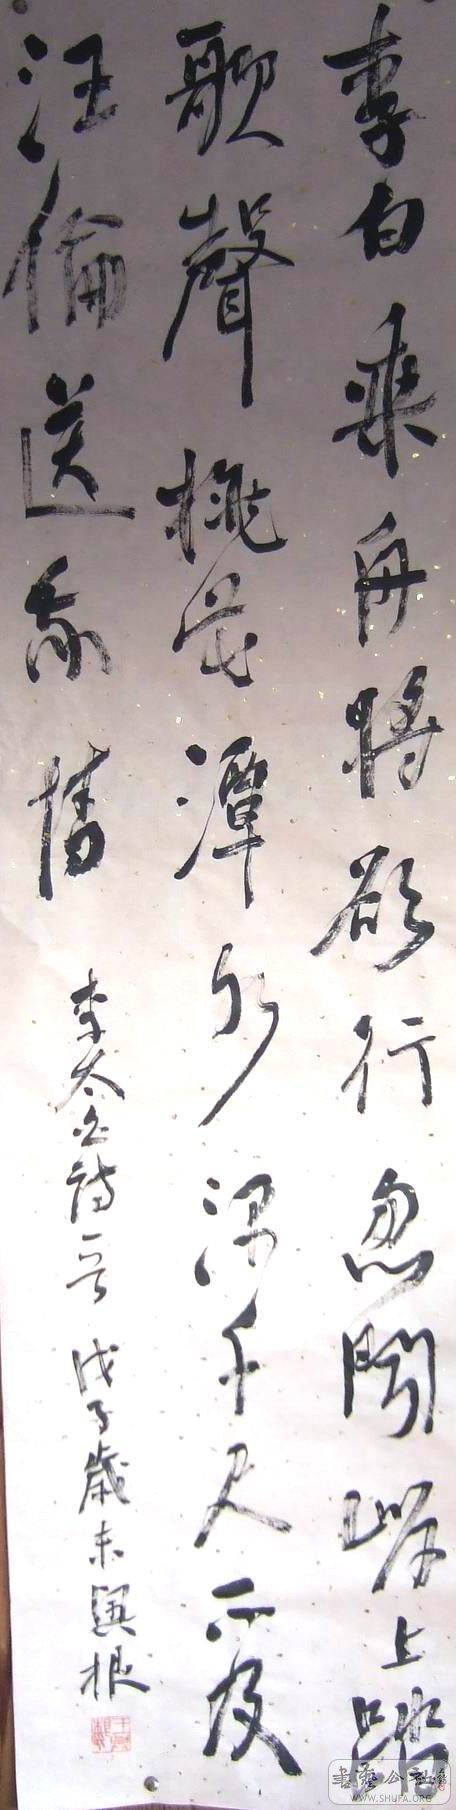 李白乘舟將欲行忽聞岸上踏
歌聲桃花潭水深千尺不及
汪倫送我情
李太白詩一首 戊子歲末興根
書藝公社
WWW.SHUFA.ORG